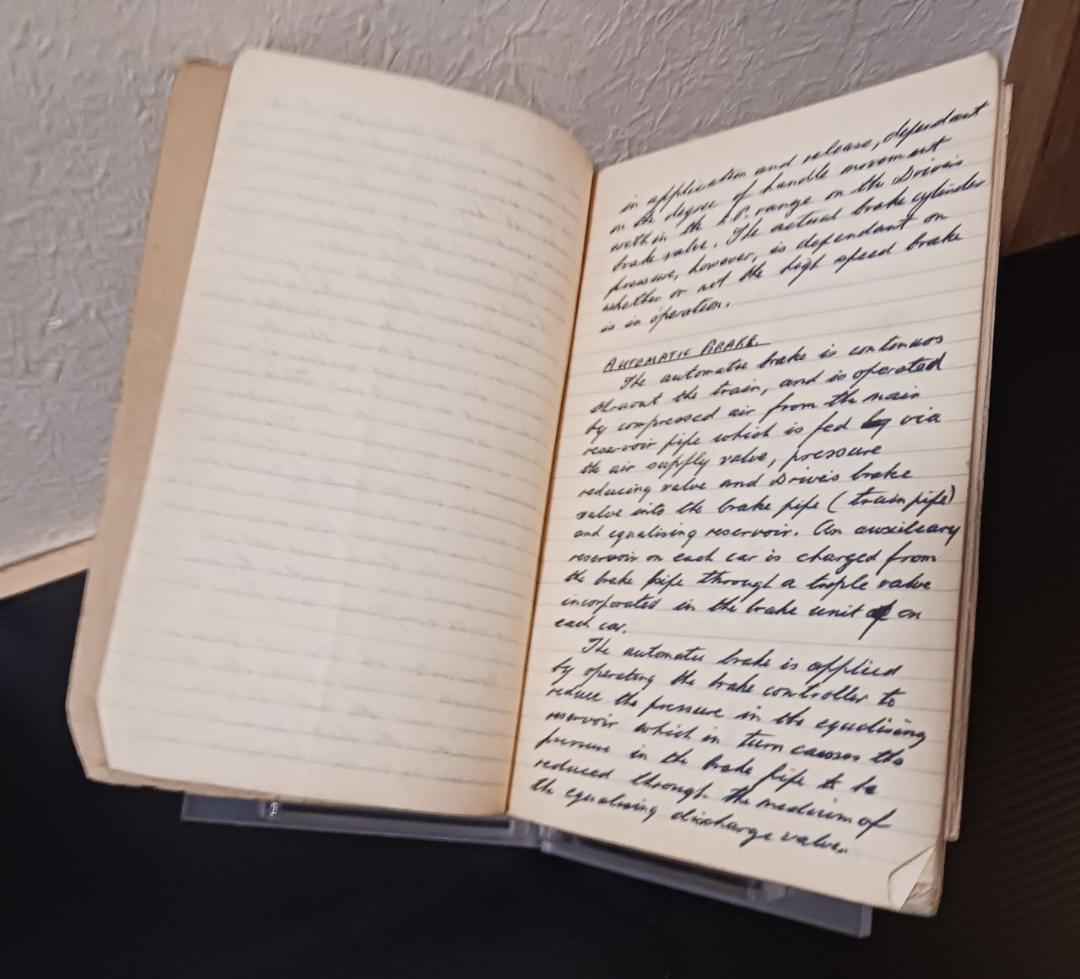 in application and release, dependant
on the degree of handle movement
within the E.P. range on the Drivers
brake valve. The actual brake cylinder
pressure, however, is dependant on
whether or not the high speed brake
is in operation.
AUTOMATIC BRAKE.
The automatic brake is continuos
thruout the train, and is operated
by compressed air from the main
reservoir pipe which is fed by via
the air supply valve, pressure
reducing valve and Drivers brake
valve into the brake pipe (train pipe)
and equalising reservoir. An auxileary
reservoir on each car is charged from
the brake pipe through a triple valve
incorporated in the brake unit on
each car.
The automatic brake is applied
by operating the brake controller to
reduce the pressure in the equalising
reservoir which in turn causes the
pressure in the brake pipe to be
reduced through the medium of
the equalising discharge valve.